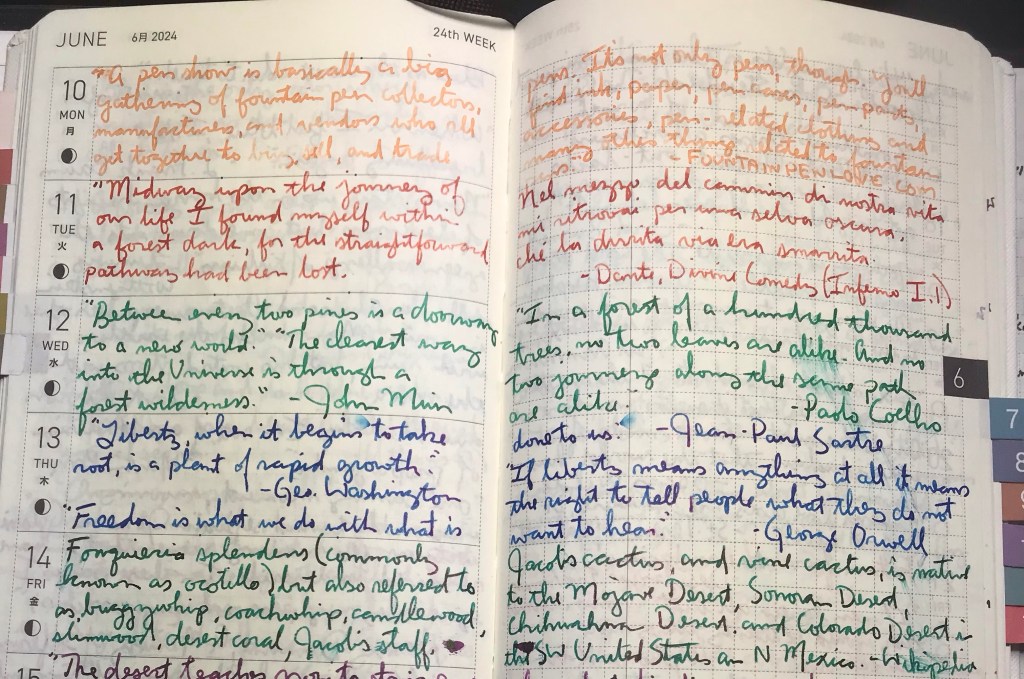 JUNE 6月 2024 24th WEEK
10 MON 月
"A pen show is basically a big
gathering of fountain pen collectors,
manufacturers, and vendors who all
get together to buy, sell, and trade
pens. It's not only pens, though. You'll
find ink, paper, pen cases, pen parts,
accessories, pen-related clothing and
many other things related to fountain
pens."
- FOUNTAINPENLOVE.COM
11 TUE 火
"Midway upon the journey of
our life I found myself within
a forest dark, for the straightforward
pathway had been lost.
Nel mezzo del cammin di nostra vita
mi ritrovai per una selva oscura,
ché la diritta via era smarrita.
- Dante, Divine Comedy (Inferno I.1)
12 WED 水
"Between every two pines is a doorway
to a new world." "The clearest way
into the Universe is through a
forest wilderness." - John Muir
"In a forest of a hundred thousand
trees, no two leaves are alike. And no
two journeys along the same path
are alike." - Paolo Coelho
13 THU 木
"Liberty, when it begins to take
root, is a plant of rapid growth."
- Geo. Washington
"Freedom is what we do with what is
done to us." - Jean-Paul Sartre
"If liberty means anything at all it means
the right to tell people what they do not
want to hear." - George Orwell
14 FRI 金
Fouquieria splendens (commonly
known as ocotillo) but also referred to
as buggywhip, coachwhip, candlewood,
slimwood, desert coral, Jacob's staff,
Jacob's cactus, and vine cactus, is native
to the Mojave Desert, Sonoran Desert,
Chihuahua Desert, and Colorado Desert in
the SW United States an N Mexico. - Wikipedia
15
"The desert teaches
6
7
8